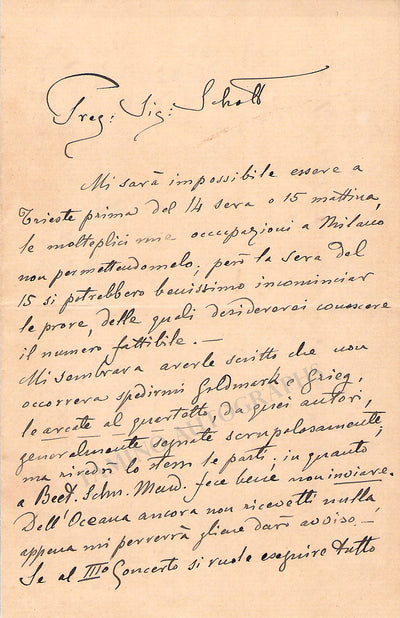 Preg: Sig: Schott
Mi sarà impossibile essere a
Trieste prima del 14 sera o 15 mattina,
le molteplici mie occupazioni a Milano
non permettendomelo; però la sera del
15 si potrebbero benissimo incominciar
le prove, delle quali desidererai conoscere
il numero fattibile. —
Mi sembrava averle scritto che non
occorreva spedirmi Goldmark e Grieg,
le arcate al quartetto da quei autori,
generalmente segnate scrupolosamente;
ma rividi lo stesso le parti; in quanto
a Beet. Schu. Mend. fece bene non inviare.
Dell'Oceana ancora non ricevetti nulla,
appena mi perverrà gliene darò avviso. —
Se al IIIo Concerto si vuole eseguire tutto